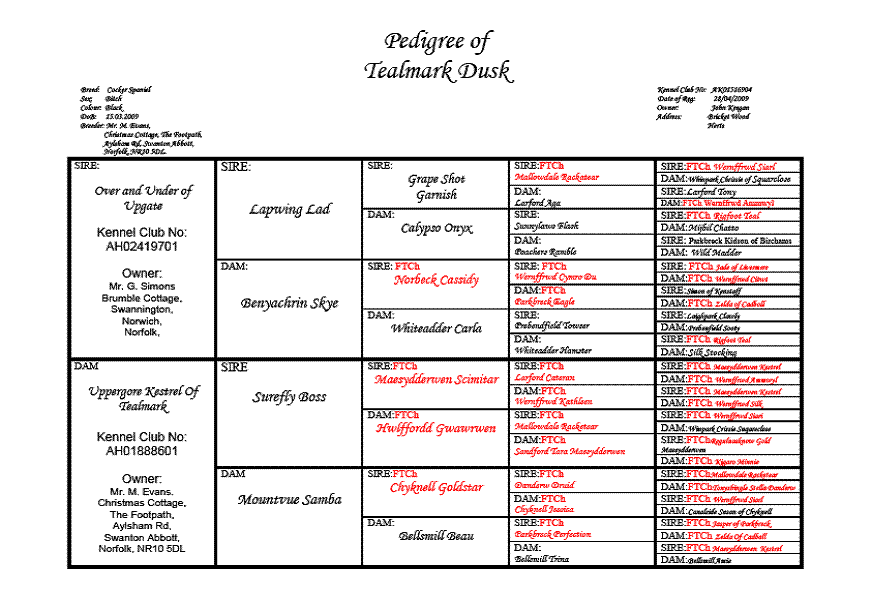 Pedigree of
Tealmark Dusk
Breed: Cocker Spaniel
Sex: Bitch
Colour: Black
DoB: 15.03.2009
Breeder: Mr. M. Evans,
Christmas Cottage, The Footpath,
Aylsham Rd, Swanton Abbott,
Norfolk, NR10 5DL
Kennel Club No: AK01516904
Date of Reg: 28/04/2009
Owner: John Keegan
Address: Bricket Wood
Herts
SIRE:
Over and Under of
Upgate
Kennel Club No:
AH02419701
Owner:
Mr. G. Simons
Brumble Cottage,
Swannington,
Norwich,
Norfolk,
DAM
Uppergore Kestrel Of
Tealmark
Kennel Club No:
AH01888601
Owner:
Mr. M. Evans.
Christmas Cottage,
The Footpath,
Aylsham Rd,
Swanton Abbott,
Norfolk, NR10 5DL
SIRE:
Lapwing Lad
DAM:
Benyachrin Skye
SIRE
Surefly Boss
DAM
Mountvue Samba
SIRE:
Grape Shot
Garnish
DAM:
Calypso Onyx
SIRE: FTCh
Norbeck Cassidy
DAM:
Whiteadder Carla
SIRE:FTCh
Maesydderwen Scimitar
DAM:FTCh
Hwlffordd Gwawrwen
SIRE:FTCh
Chyknell Goldstar
DAM:
Bellsmill Beau
SIRE:FTCh
Mallowdale Racketear
DAM:
Larford Aga
SIRE:
Sunnylawn Flash
DAM:
Poachers Ramble
SIRE: FTCh
Wernffrwd Cymro Du
DAM:FTCh
Parkbreck Eagle
SIRE:
Prebendfield Towser
DAM:
Whiteadder Hamster
SIRE:FTCh
Larford Cateran
DAM:FTCh
Wernffrwd Kathleen
SIRE:FTCh
Mallowdale Racketear
DAM:FTCh
Sandford Tara Maesydderwen
SIRE:FTCh
Danderw Druid
DAM:FTCh
Chyknell Jessica
SIRE:FTCh
Parkbreck Perfection
DAM:
Bellsmill Trina
SIRE:FTCh Wernffrwd Siarl
DAM:Whinpark Chrissie of Squarclose
SIRE:Larford Tony
DAM:FTCh Wernffrwd
SIRE:FTCh Rigfoot Teal
DAM:Mijbil Chatto
SIRE: Parkbreck Kidson of Birchams
DAM: Wild Madder
SIRE:FTCh Jade of Livermere
DAM:FTCh Wernffrwd
SIRE:Simon of Kenstaff
DAM:FTCh Zelda of Cadboll
SIRE:Leighpark Clawly
DAM:Prebenfield Sooty
SIRE:FTCh Rigfoot Teal
DAM:Silk Stocking
SIRE:FTCh Maesydderwen Kestrel
DAM:FTCh Wernffrwd
SIRE:FTCh Maesydderwen Kestrel
DAM:FTCh Wernffrwd Silk
SIRE:FTCh Wernffrwd Siarl
DAM:Winpark Crissie
SIRE:FTCh Gold
Maesydderwen
DAM:FTCh Kigaro Minnie
SIRE:FTChMallowdale Racketear
DAM:FTCh Stella Danderw
SIRE:FTCh Wernffrwd Siarl
DAM:Canalside Susan of Chyknell
SIRE:FTCh Jasper of Parkbreck
DAM:FTCh Zelda Of Cadboll
SIRE:FTCh Maesydderwen Kestrel
DAM:Bellsmill